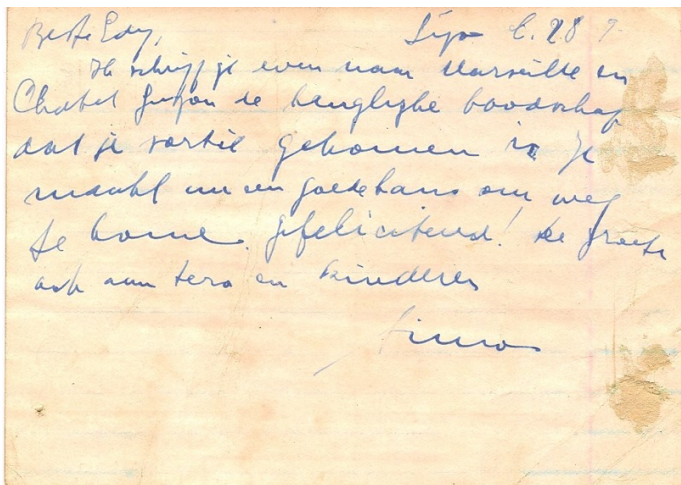 Beste Edy, Lyon 6. 28 9
Ik schrijf je even naar Marseille en
Chatel Guyon de heuglijke boodschap
dat je sortie gekomen is. Je
maakt nu een goede kans om weg
te kome gefeliciteerd! de groete
ook aan en kinderen